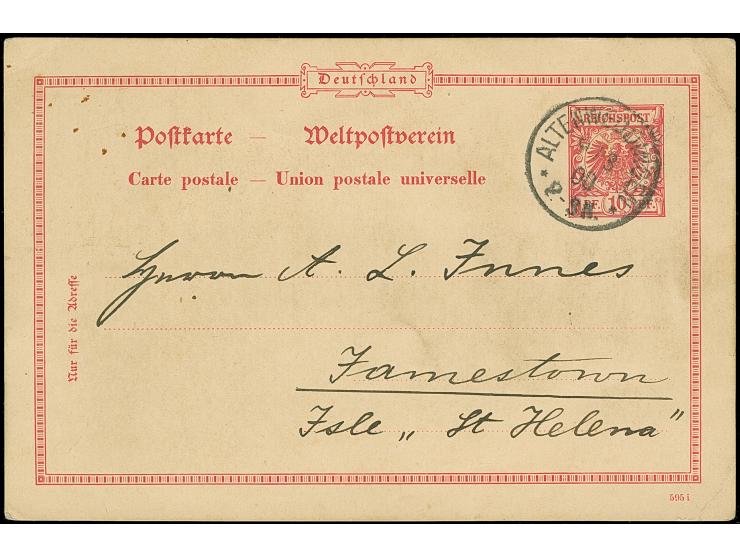 Deutschland
Postkarte — Weltpostverein
Carte postale — Union postale universelle
REICHSPOST
10 PF.
2-3N.
Nur für die Adresse
Herrn A. L. Innes
Jamestown
Isle „St Helena"
595 i